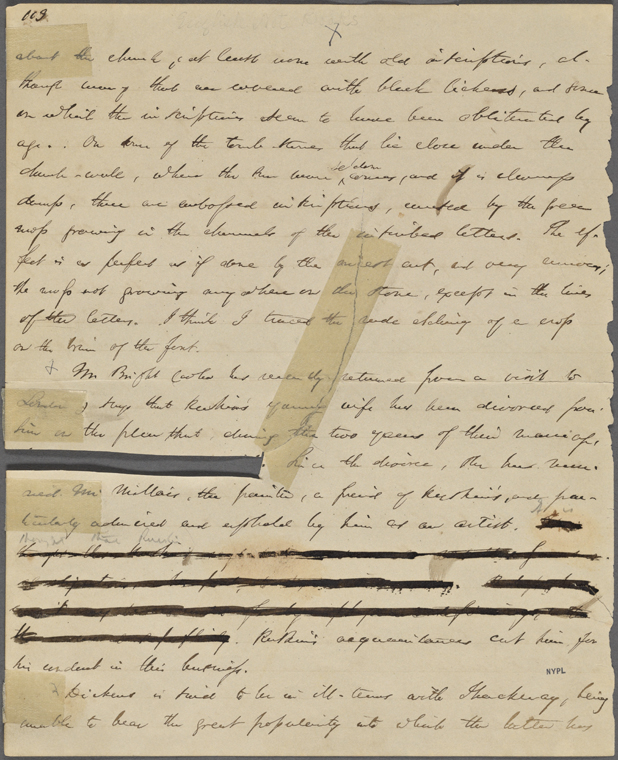 109
about the church, at least none with old inscriptions, al-
though many that are covered with black lichens, and some
on which the inscriptions seem to have been obliterated by
age. On some of the tomb-stones that lie close under the
church-wall, where the sun seldom comes, and it is always
damp, there are embossed inscriptions, caused by the green
moss growing in the channels of the inscribed letters. The ef-
fect is as perfect as if done by the nicest art, and very curious;
the moss not growing any where on the stone, except in the lines
of the letters. I think I traced the rude etching of a cross
on the brim of the font.
Mr Bright (who has recently returned from a visit to
London) says that Ruskin's young wife has been divorced from
him on the plea that during the two years of their marriage,
Since the divorce, she has mar-
ried Mr Millais, the painter, a friend of Ruskin's, and par-
ticularly admired and upheld by him as an artist.
thought that Ruskin
Ruskin's acquaintances cut him for
his conduct in this business.
Dickens is said to be in ill-terms with Thackeray, being
unable to bear the great popularity into which the latter has
NYPL